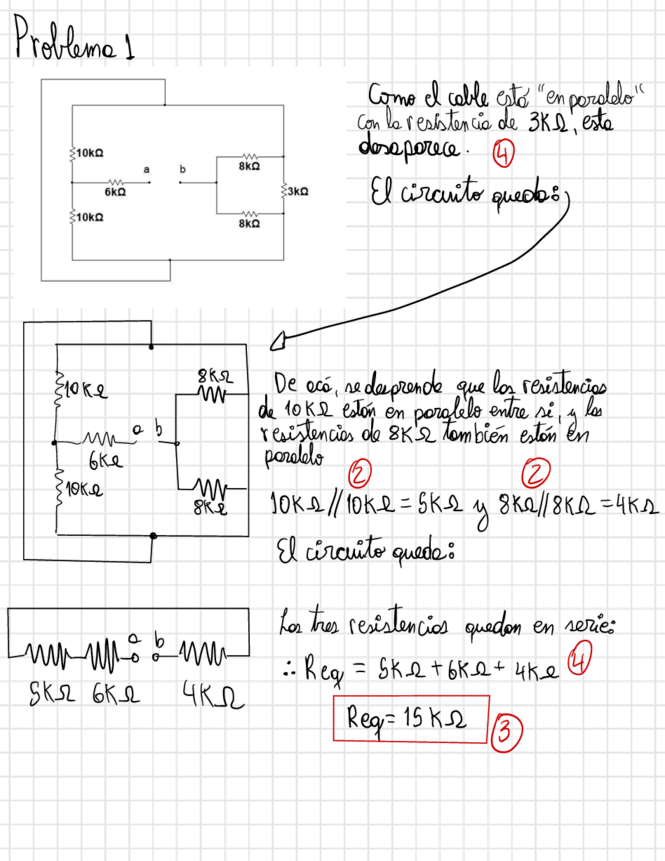 Problema 1
Como el cable está "en paralelo"
con la resistencia de 3KΩ, esta
desaparece. 4
El circuito queda:
10kΩ
a b
6kΩ
8kΩ
3kΩ
10kΩ
8kΩ
De acá, se desprende que las resistencias
de 10KΩ están en paralelo entre si, y las
resistencias de 8KΩ también están en
paralelo
2 2
10KΩ//10KΩ = 5KΩ y 8KΩ//8KΩ = 4KΩ
El circuito queda:
8KΩ
10KΩ
a b
6KΩ
10KΩ
8KΩ
Las tres resistencias quedan en serie:
∴ Req = 5KΩ + 6KΩ + 4KΩ 4
Req = 15KΩ 3
a b
5KΩ 6KΩ 4KΩ